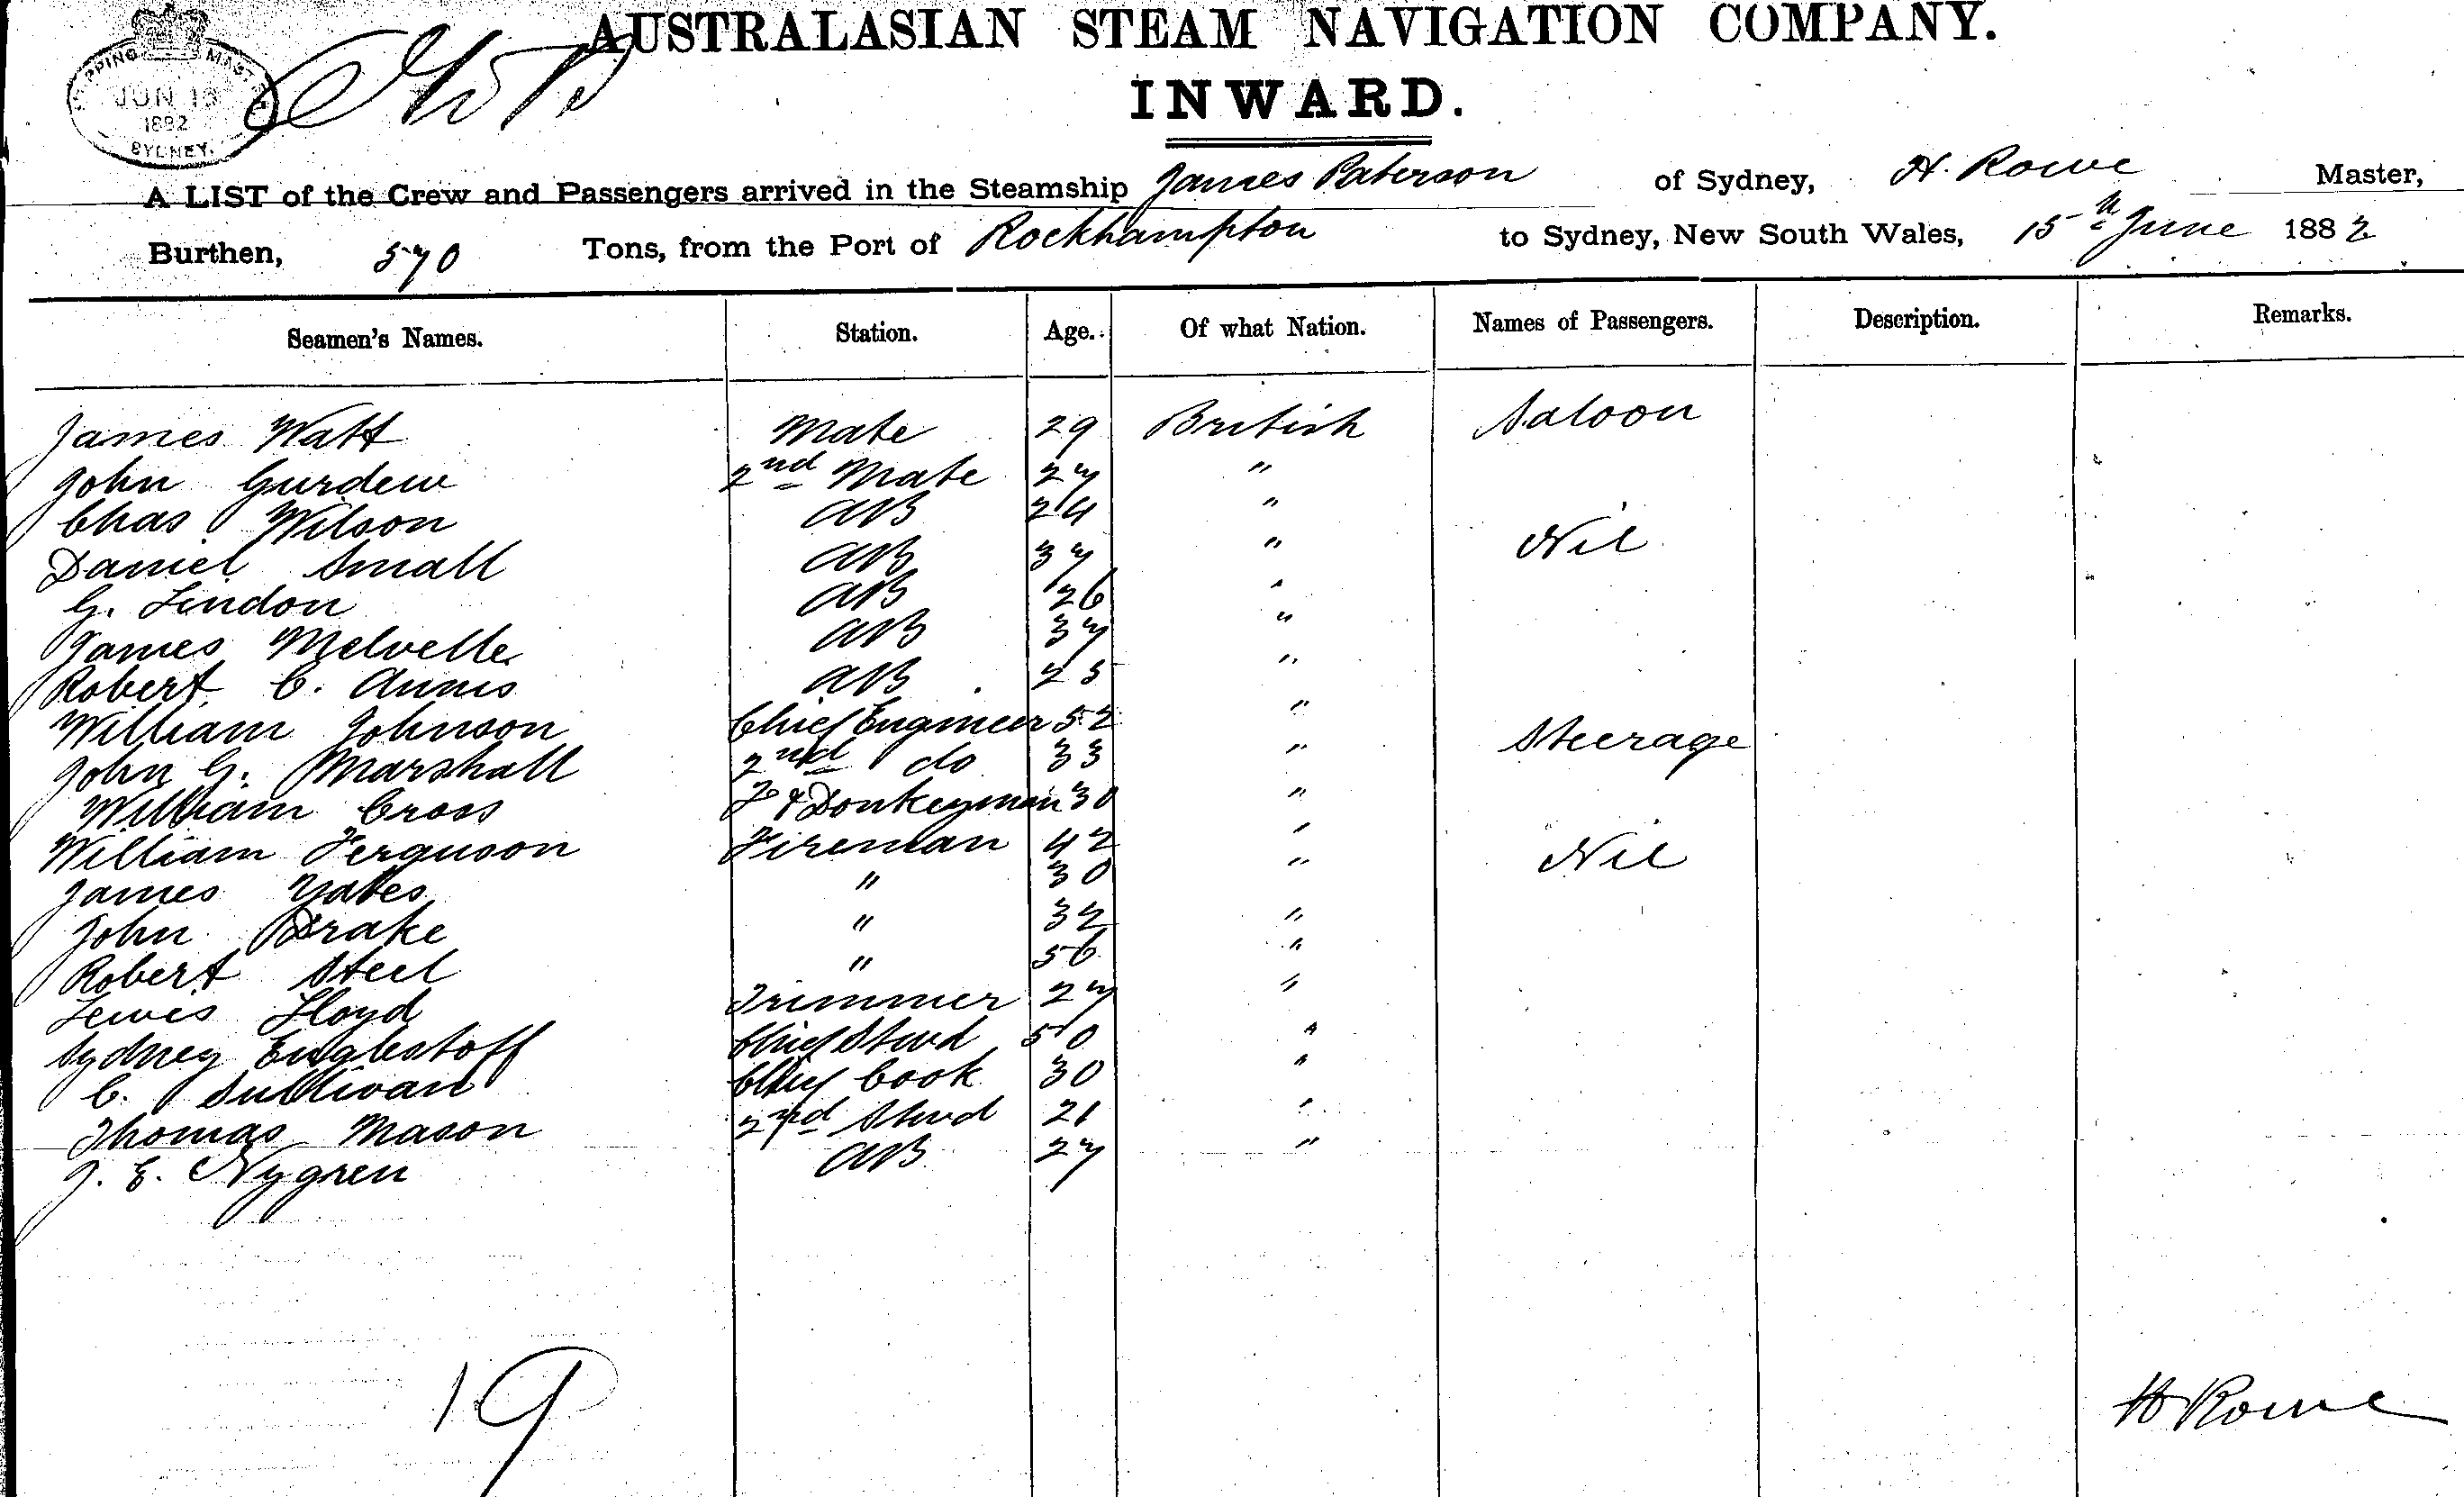 AUSTRALASIAN STEAM NAVIGATION COMPANY.
INWARD.
SHIPPING MASTER
JUN 1
1882
SYDNEY.
A LIST of the Crew and Passengers arrived in the Steamship James Paterson of Sydney, H. Rowe Master,
Burthen, 570 Tons, from the Port of Rockhampton to Sydney, New South Wales, 15th June 1882
Seamen's Names. Station. Age. Of what Nation. Names of Passengers. Description. Remarks.
James Watt Mate 29 British Saloon
John Gurdew 2nd Mate 27 "
Chas Wilson AB 24 "
Daniel Small AB 37 " Nil
G. Lindon AB 26 "
James Melvelle AB 37 "
Robert C. Annis AB 25 "
William Johnson Chief Engineer 52 "
John G. Marshall 2nd do 33 " Steerage
William Cross F & Donkeyman 30 "
William Ferguson Fireman 42 "
James Yates " 30 " Nil
John Drake " 32 "
Robert Steel " 56 "
Lewis Lloyd Trimmer 27 "
Sydney Englestoff Chief Stwd 50 "
C. Sullivan Chief Cook 30 "
Thomas Mason 2nd Stwd 21 "
J. E. Nygren AB 27 "
19
H Rowe